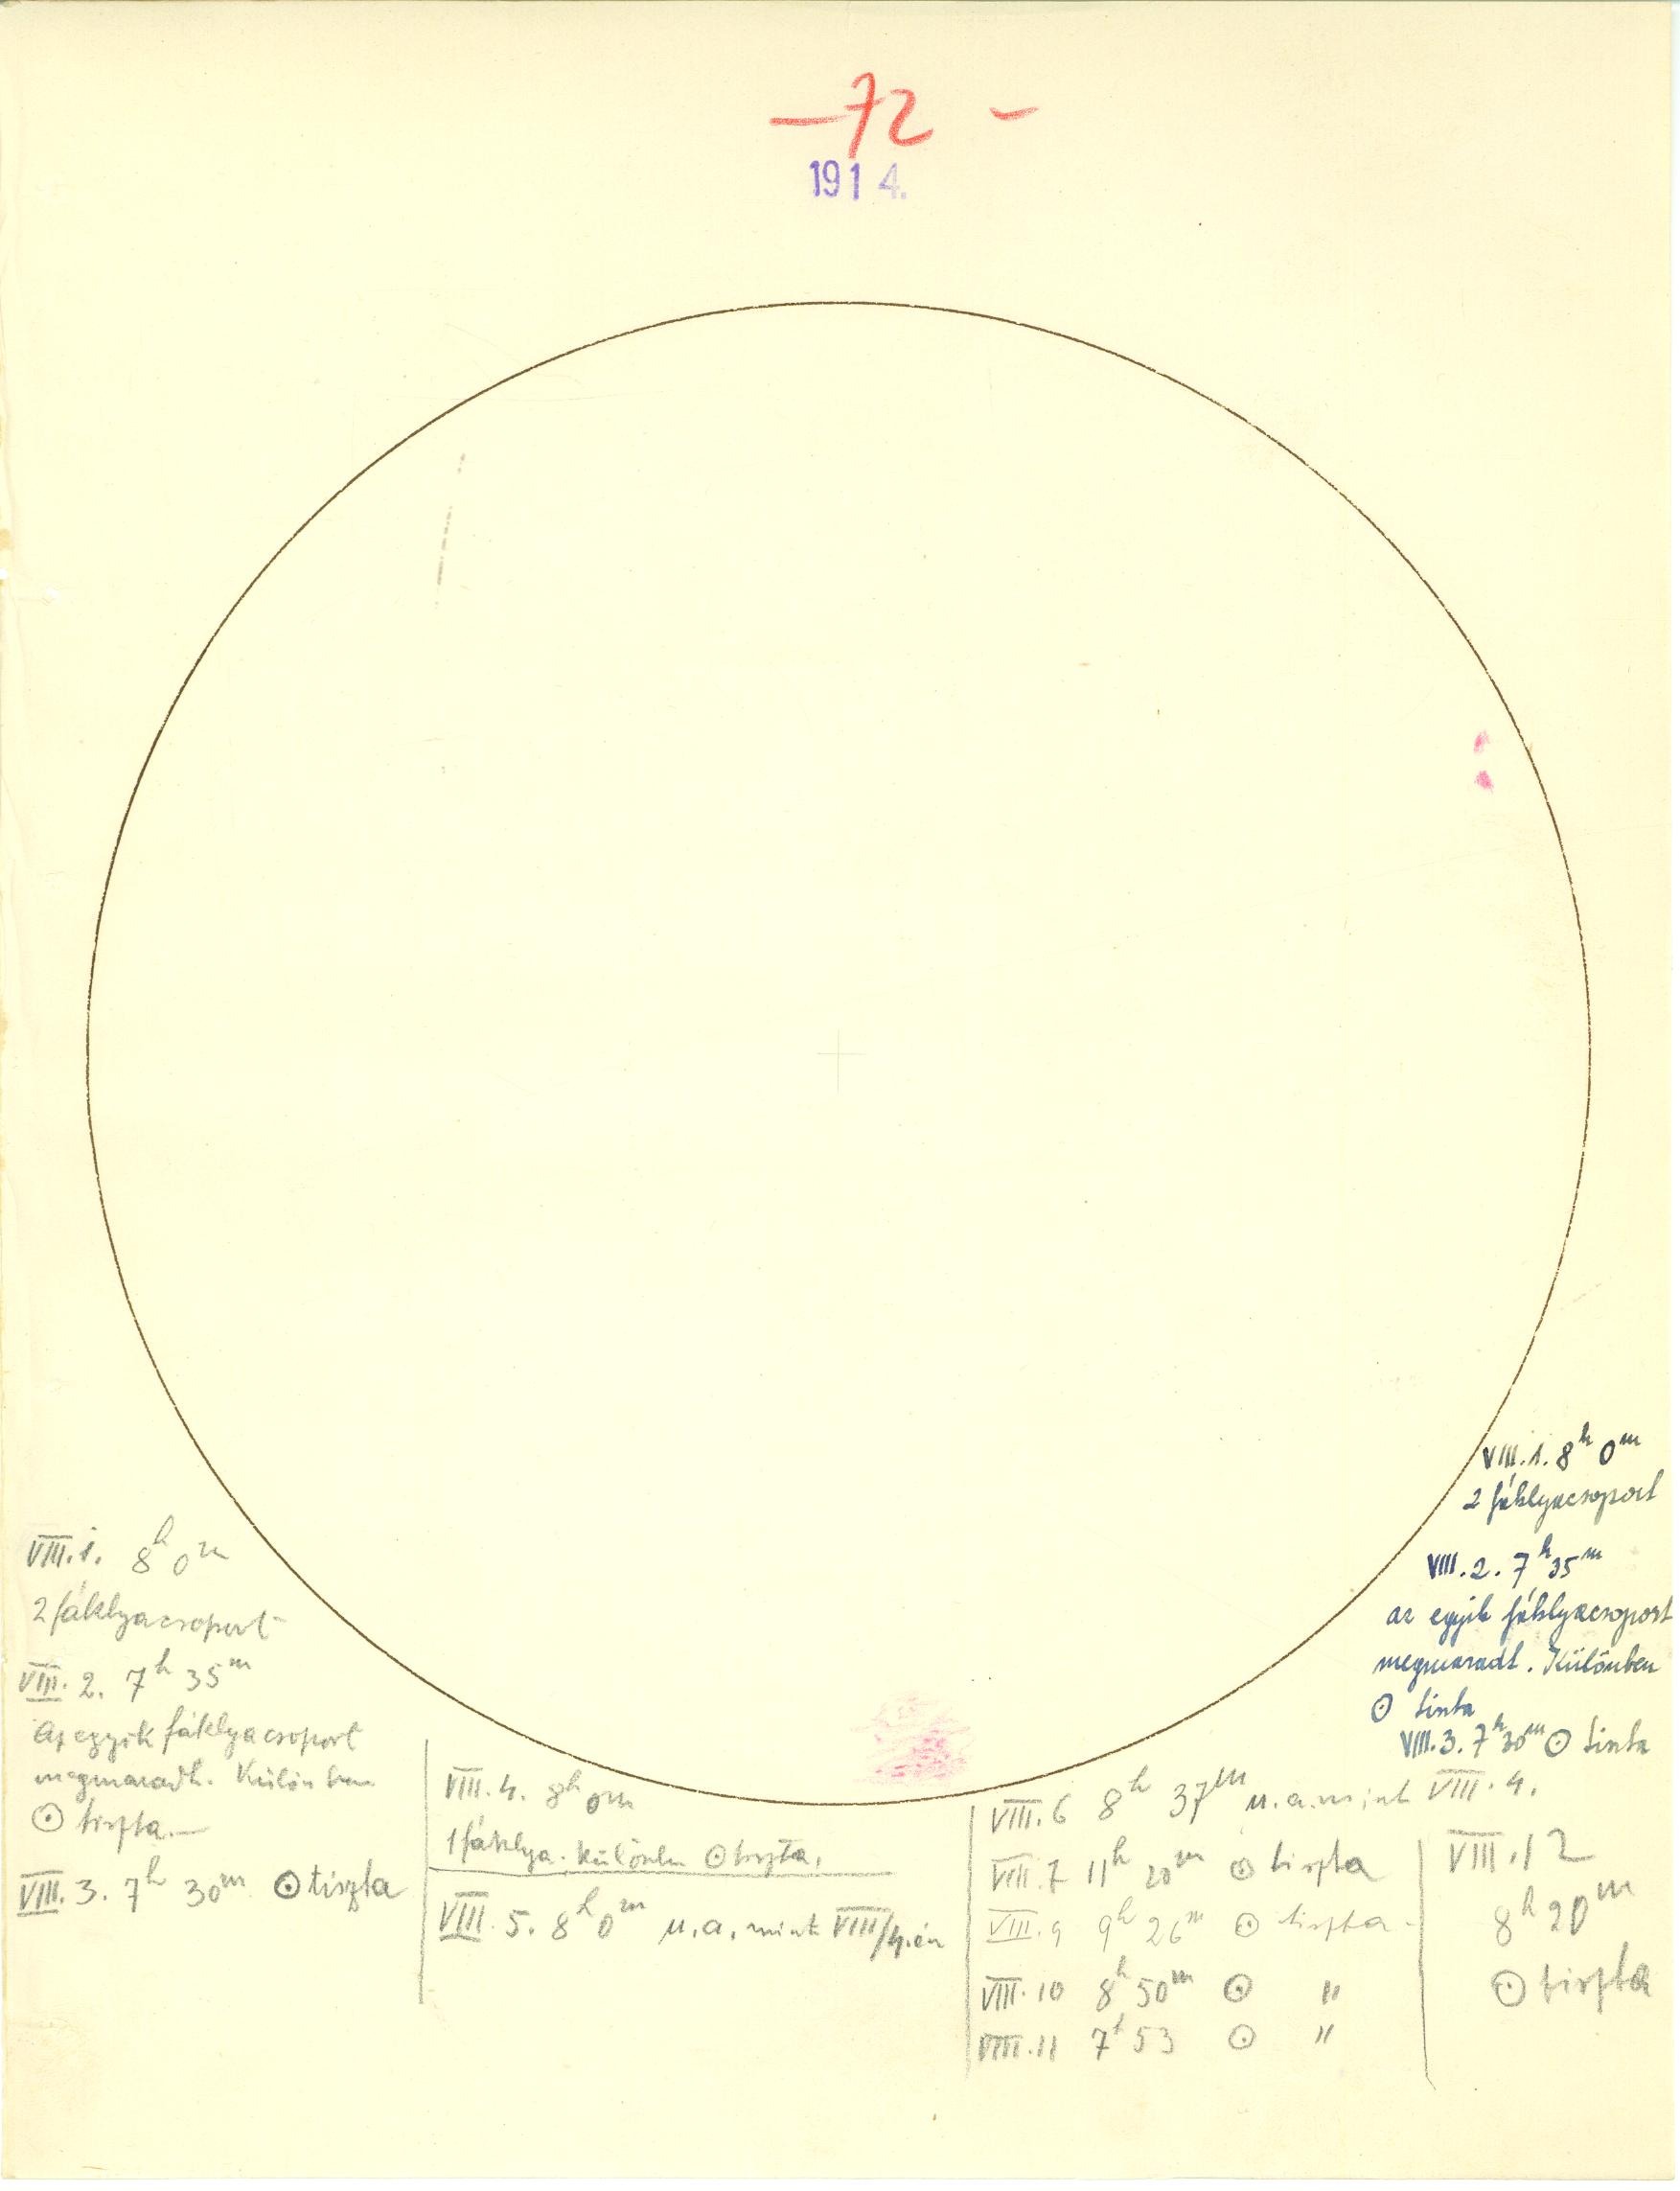 —72 —
1914.
VIII.1. 8h 0m
2 fáklyacsoport
VIII.2. 7h 35m
az egyik fáklyacsoport
megmaradt. Különben
⊙ tiszta
VIII.3. 7h 30m ⊙ tiszta
VIII.1. 8h 0m
2 fáklyacsoport
VIII. 2. 7h 35m
Az egyik fáklyacsoport
megmaradt. Különben
⊙ tiszta.—
VIII. 3. 7h 30m ⊙ tiszta
VIII. 4. 8h 0m
1 fáklya. Különben ⊙ tiszta.
VIII. 5. 8h 0m u.a. mint VIII/4.én
VIII.6 8h 37m u.a. mint VIII.4.
VIII.7 11h 20m ⊙ tiszta
VIII.9 9h 26m ⊙ tiszta-
VIII.10 8h 50m ⊙ "
VIII.11 7h 53 ⊙ "
VIII.12
8h 20m
⊙ tiszta